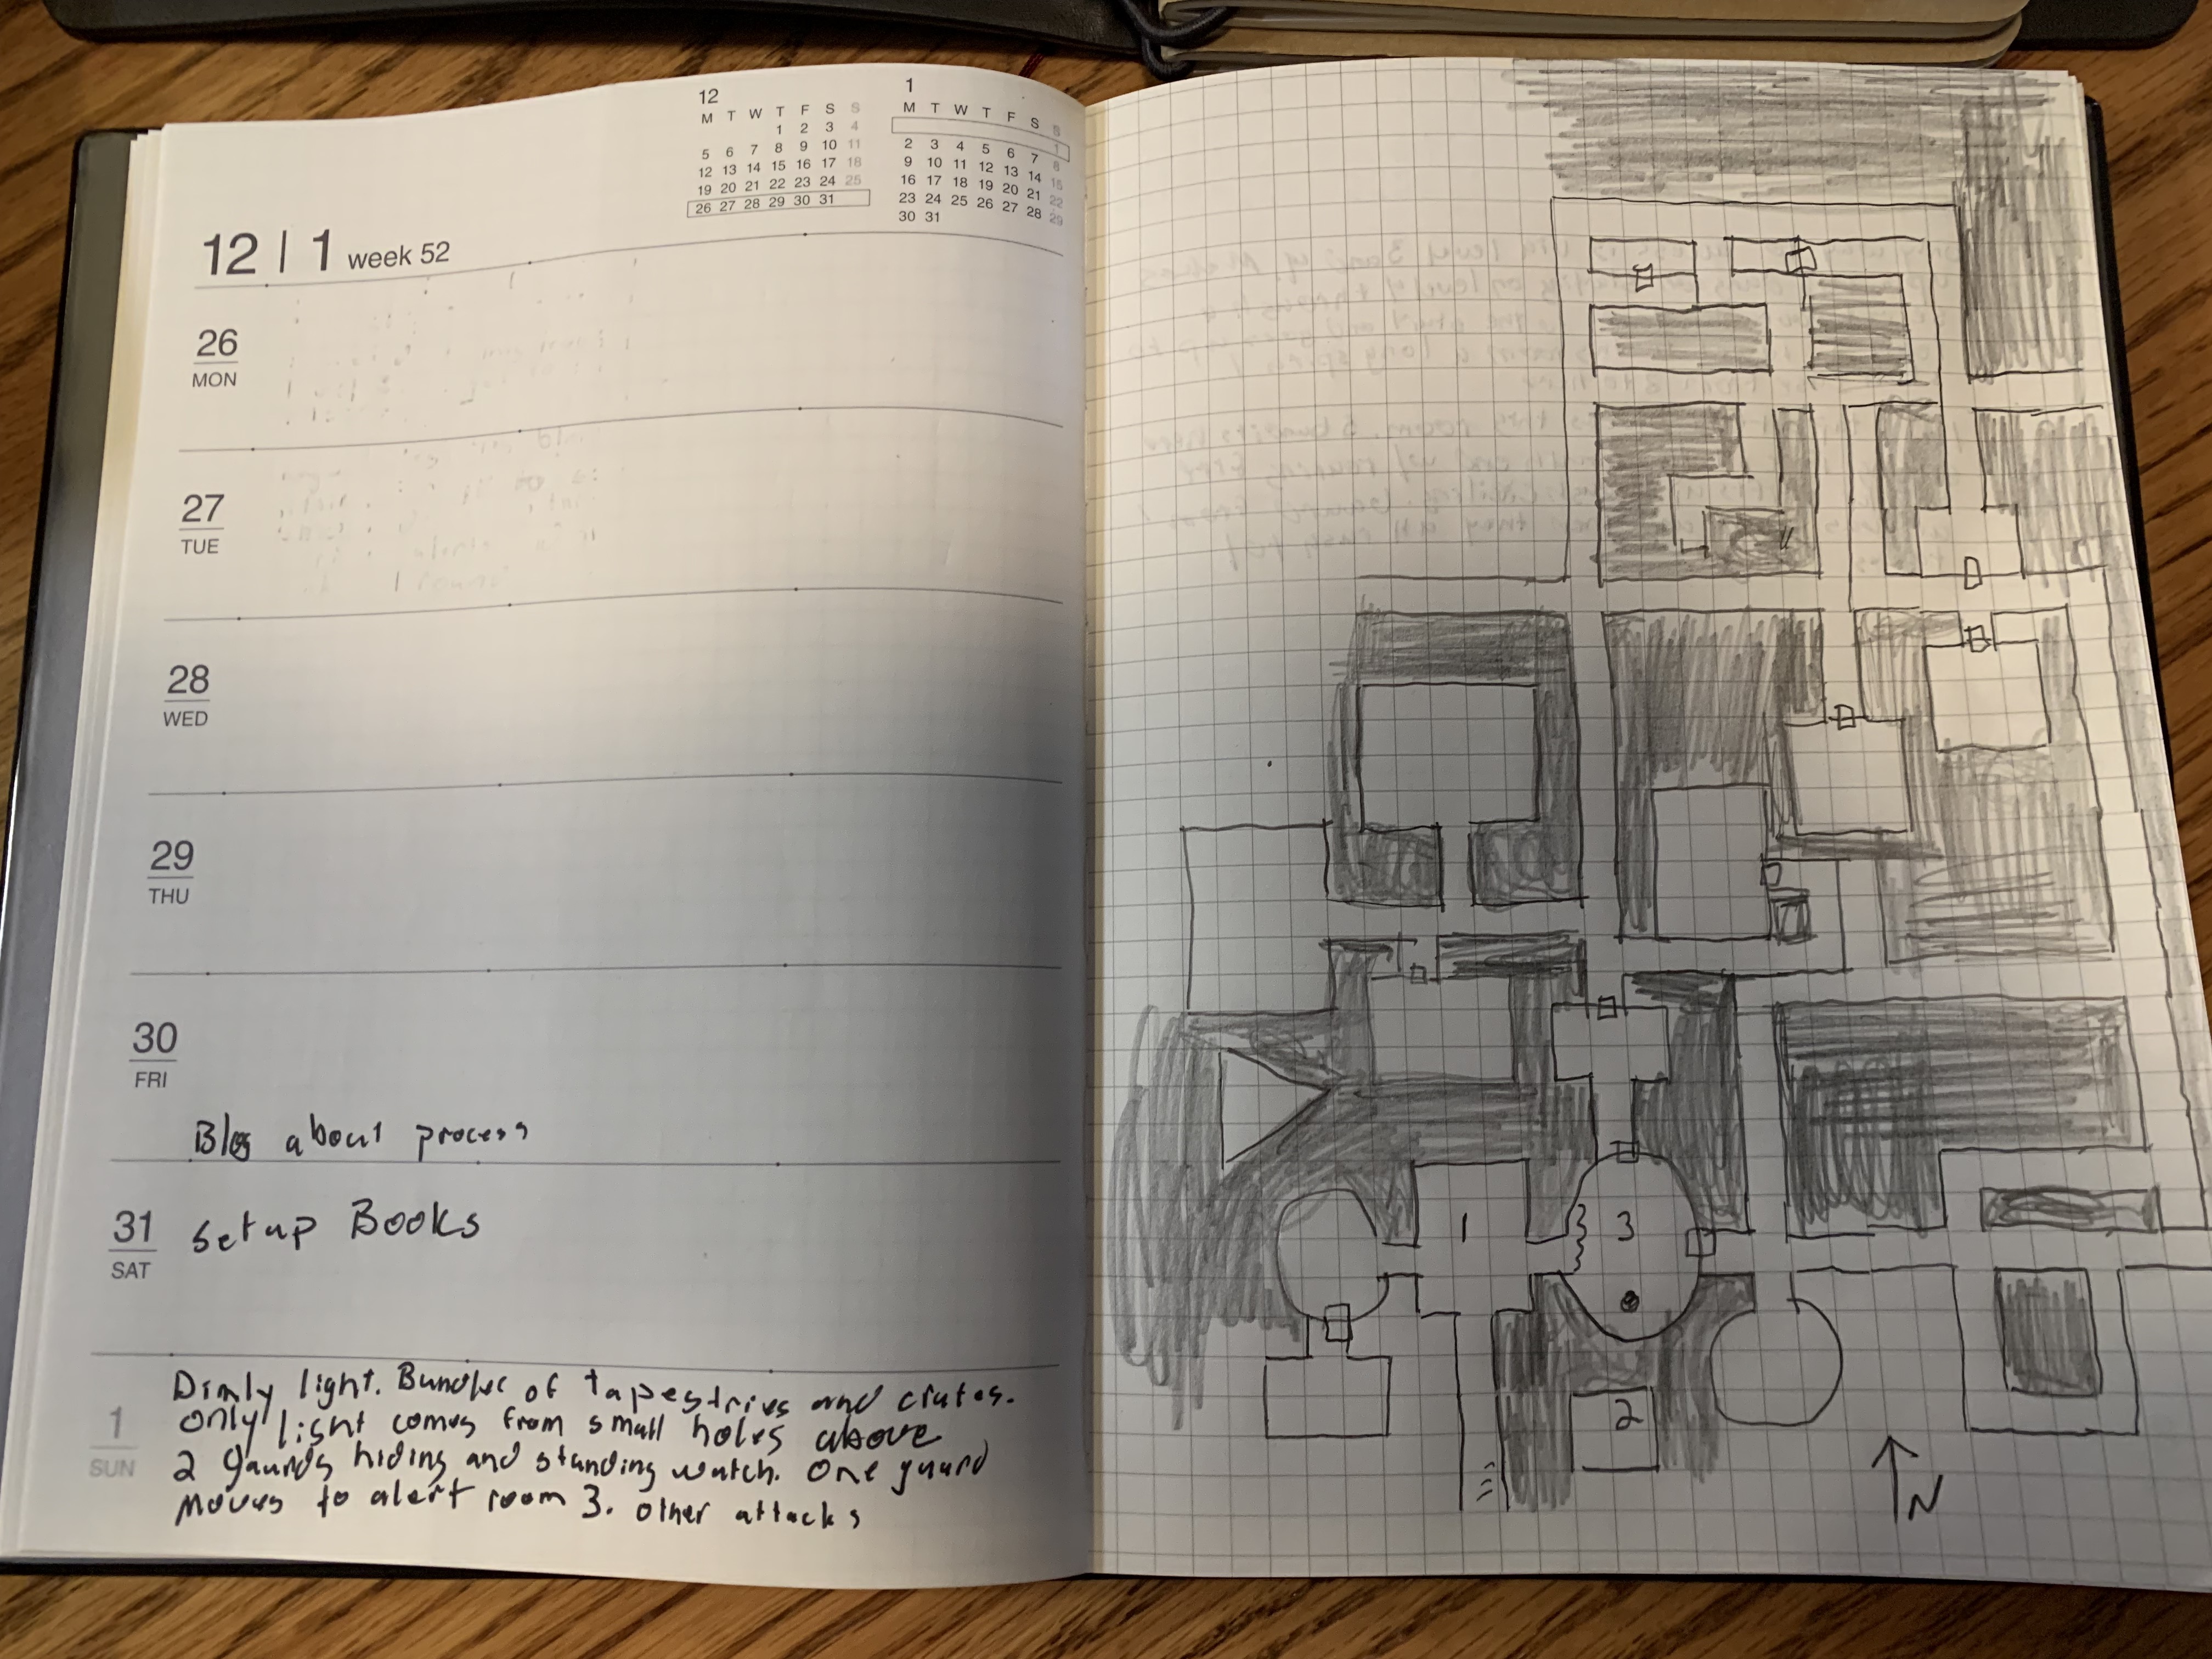 12
M T W T F S S
1 2 3 4
5 6 7 8 9 10 11
12 13 14 15 16 17 18
19 20 21 22 23 24 25
26 27 28 29 30 31
1
M T W T F S S
1
2 3 4 5 6 7 8
9 10 11 12 13 14 15
16 17 18 19 20 21 22
23 24 25 26 27 28 29
30 31
12 | 1 week 52
26
MON
27
TUE
28
WED
29
THU
30
FRI
Blog about process
31
SAT
Setup Books
1
SUN
Dimly light. Bundles of tapestries and crates.
only light comes from small holes above
2 gaurds hiding and standing watch. One guard
moves to alert room 3. other attacks
1
3
2
N